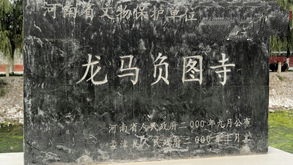 河南省文物保护单位
龙马负图寺
河南省人民政府二000年九月公布
孟津县人民政府二00年十月立